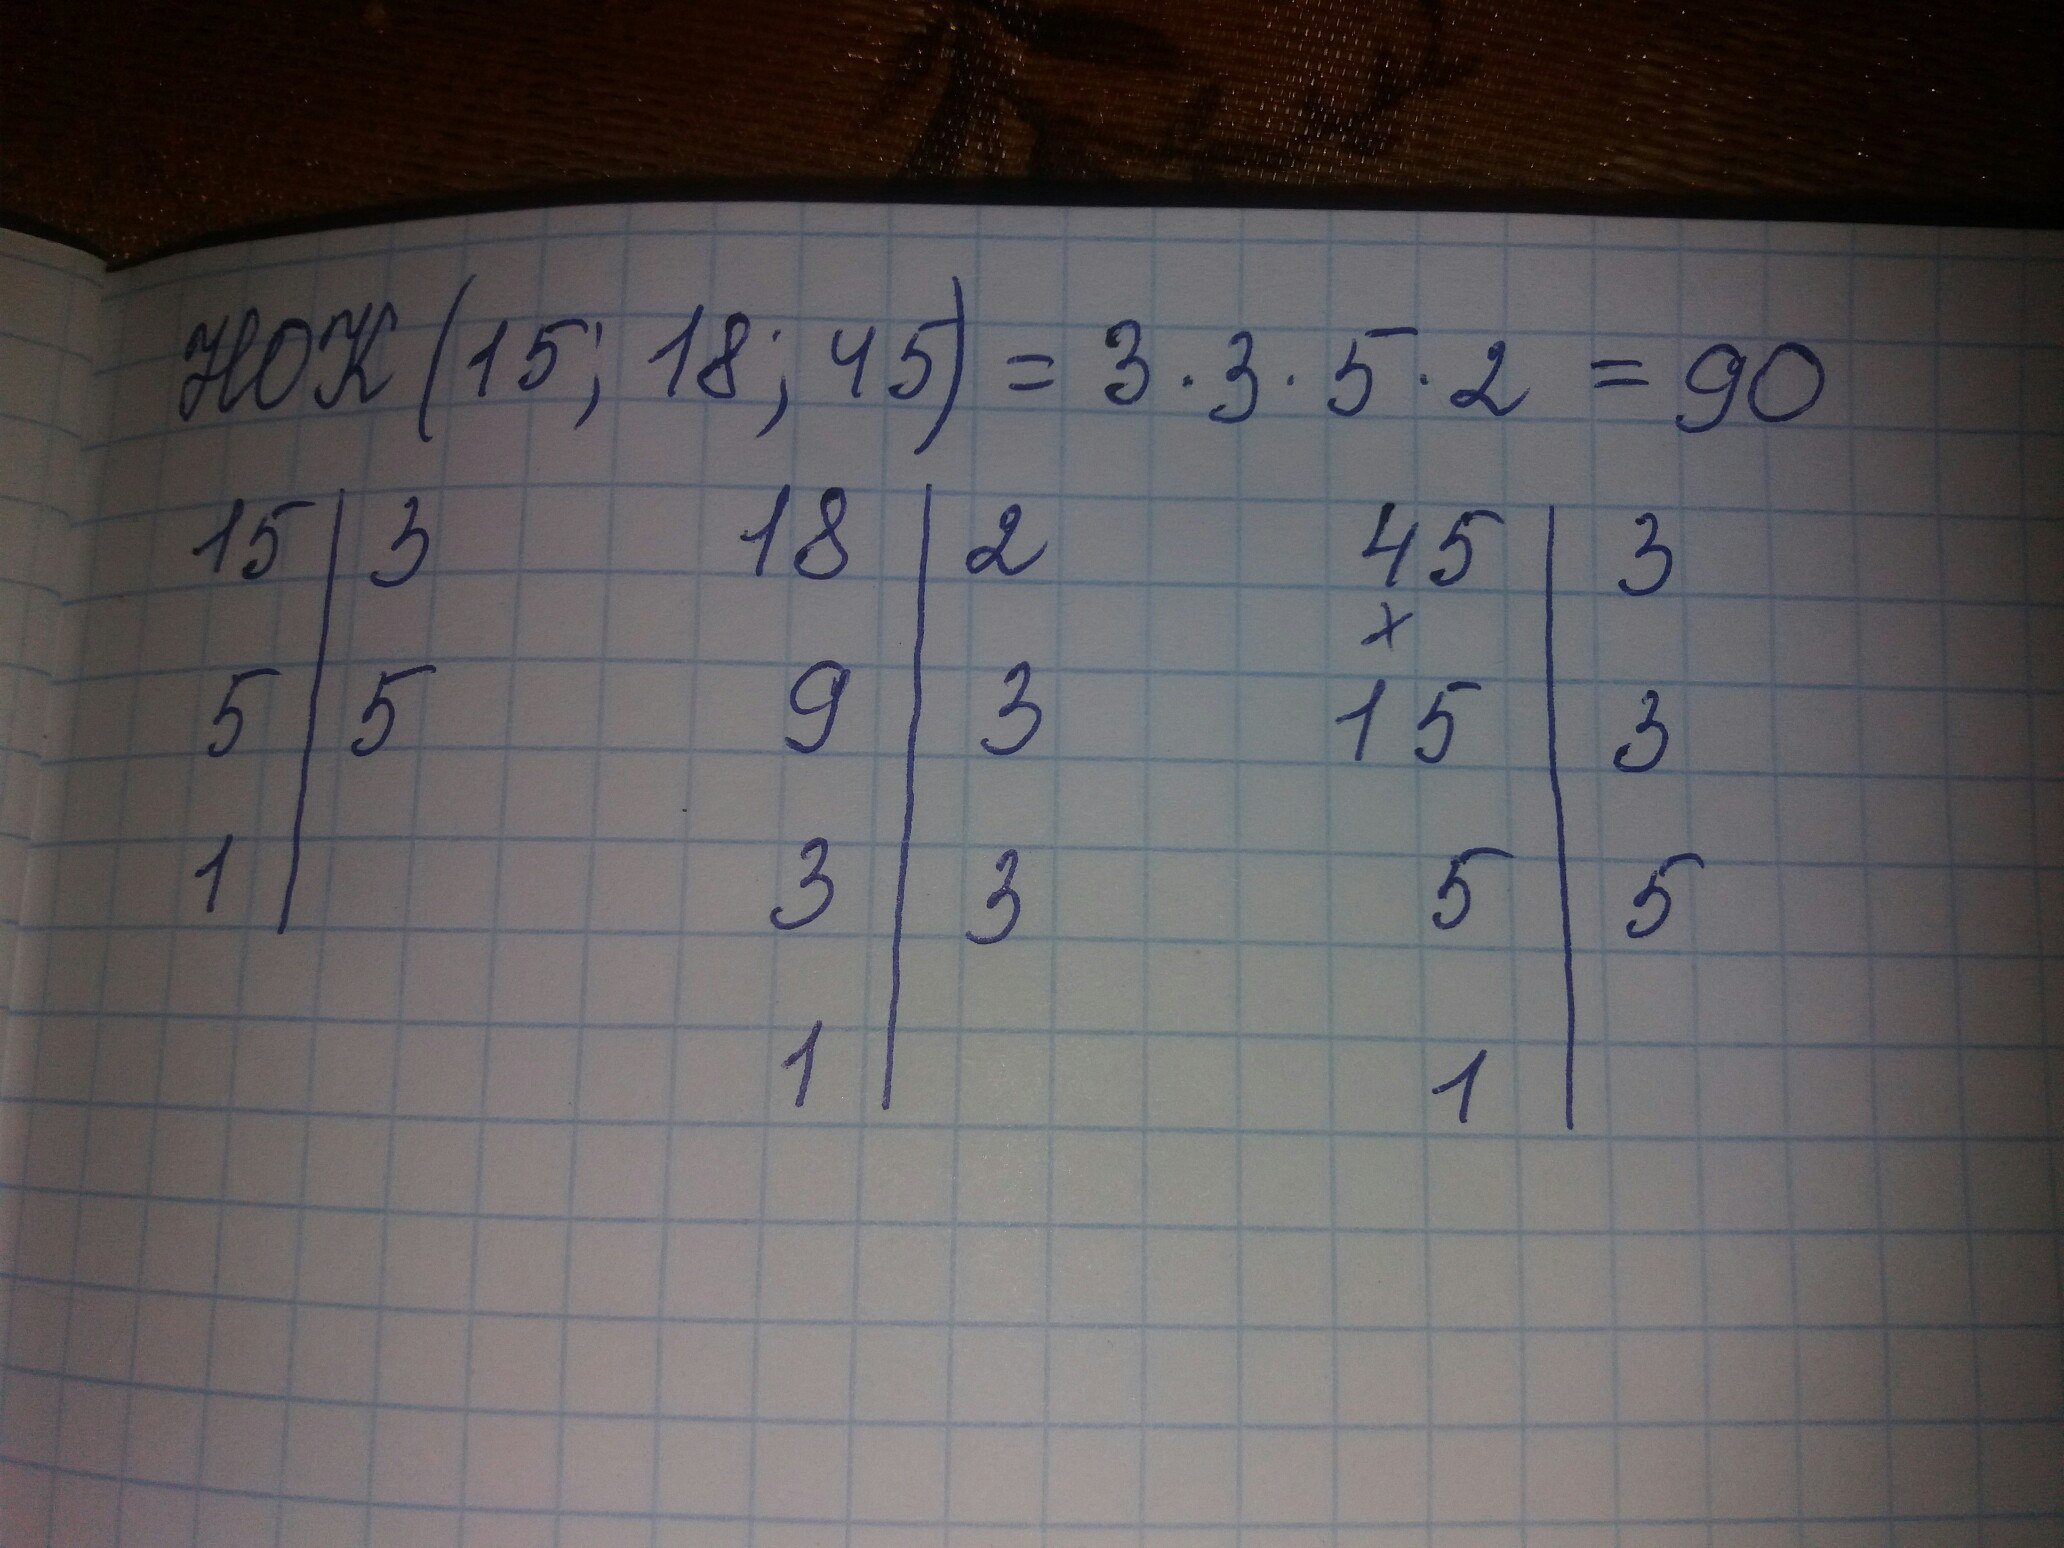 НОК (15; 18; 45) = 3 · 3 · 5 · 2 = 90
15 | 3 18 | 2 45 | 3
x
5 | 5 9 | 3 15 | 3
1 | 3 | 3 5 | 5
1 | 1 |